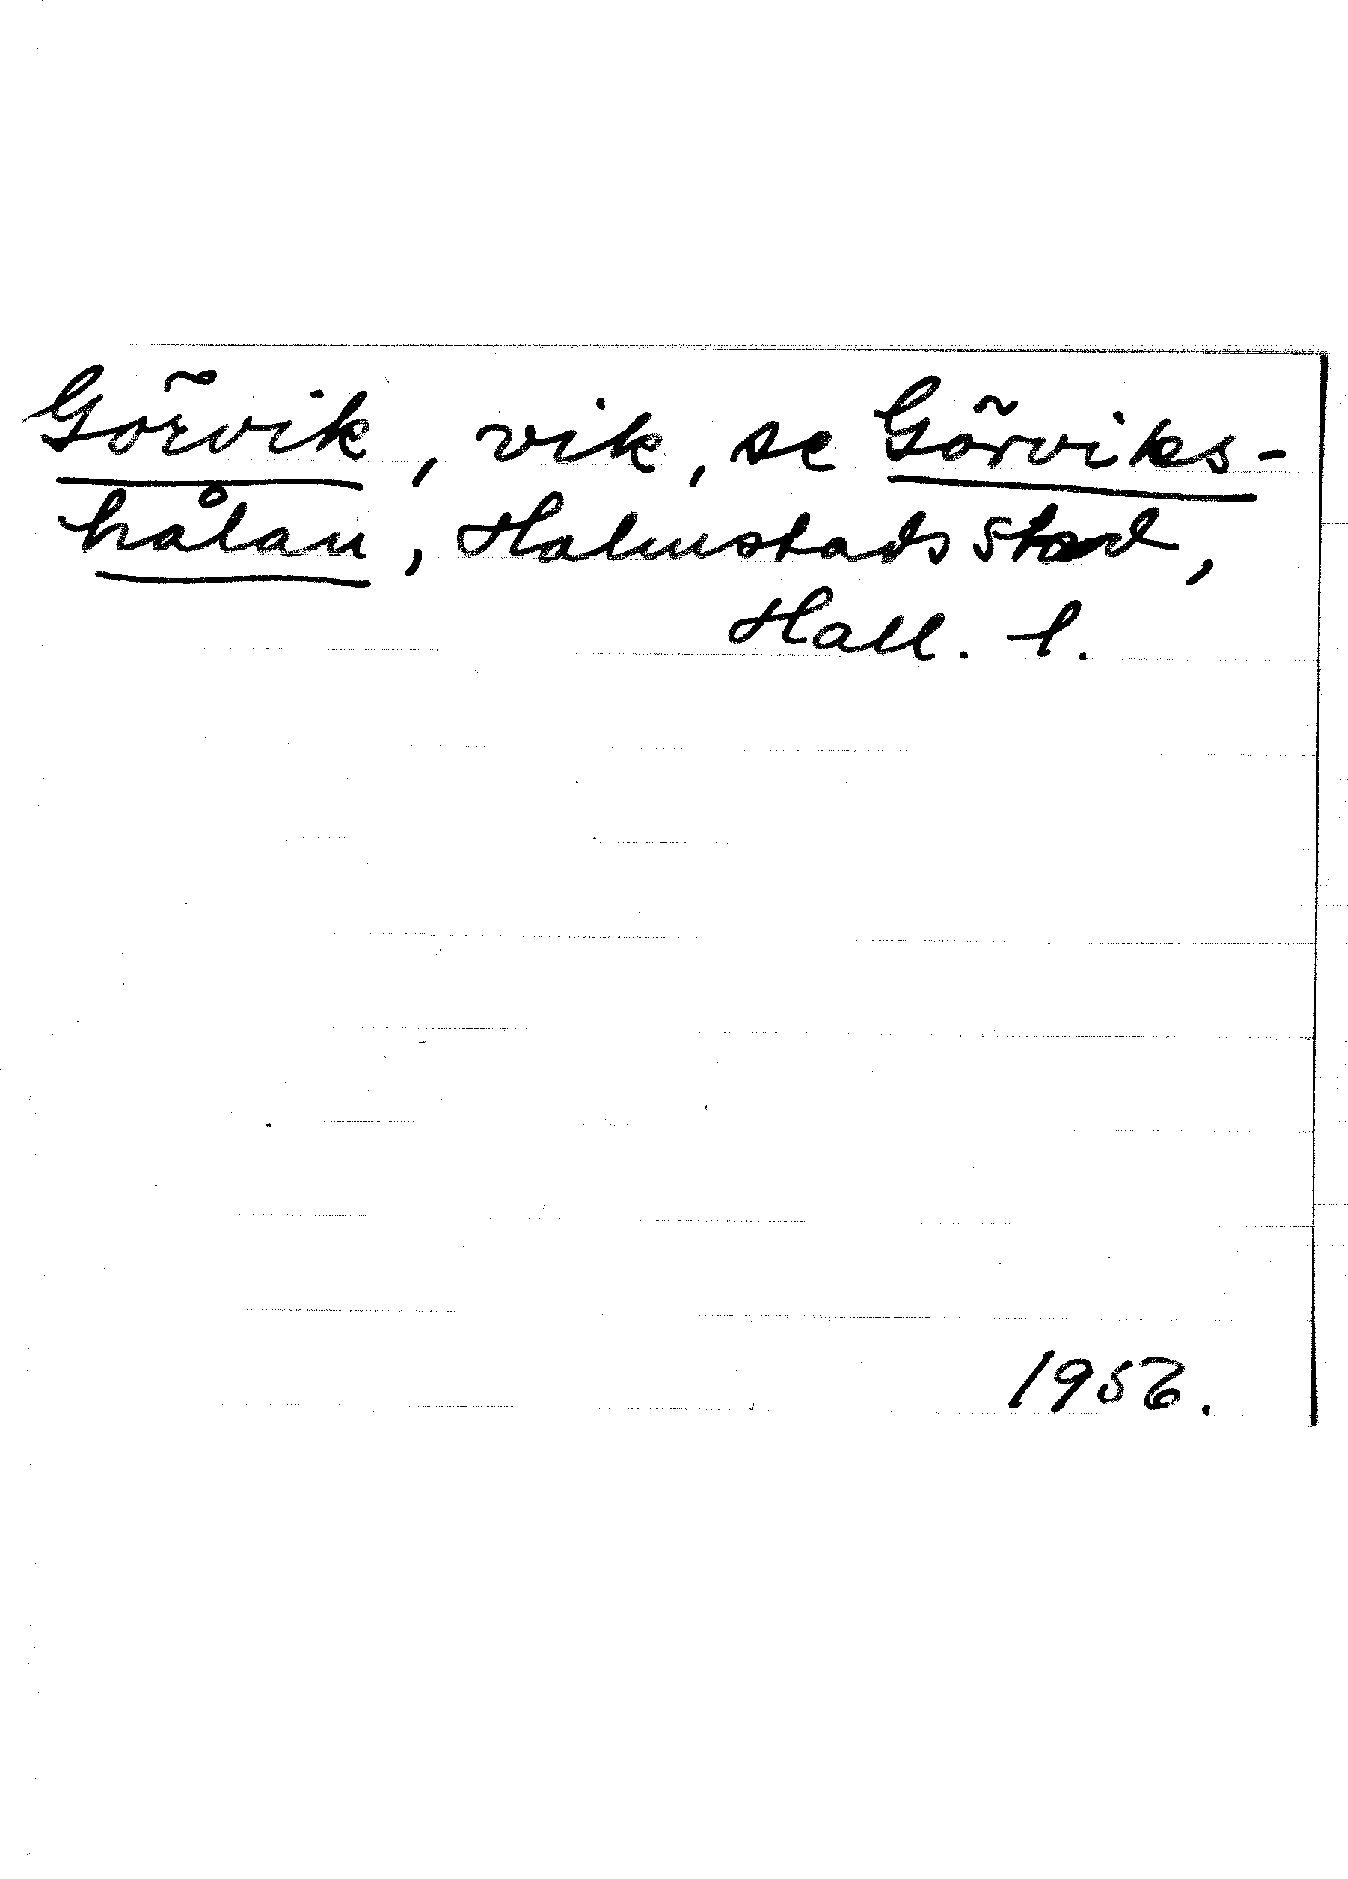 Görvik, vik, se Görviks-
hålan, Halmstads stad,
Hall. l.
1956.